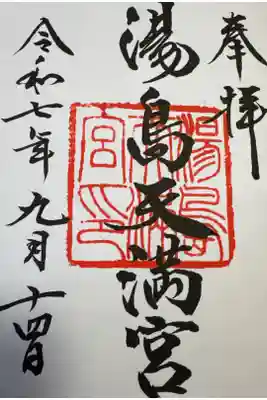 奉拝
湯島天満宮
令和七年九月十四日
湯島天満宮印